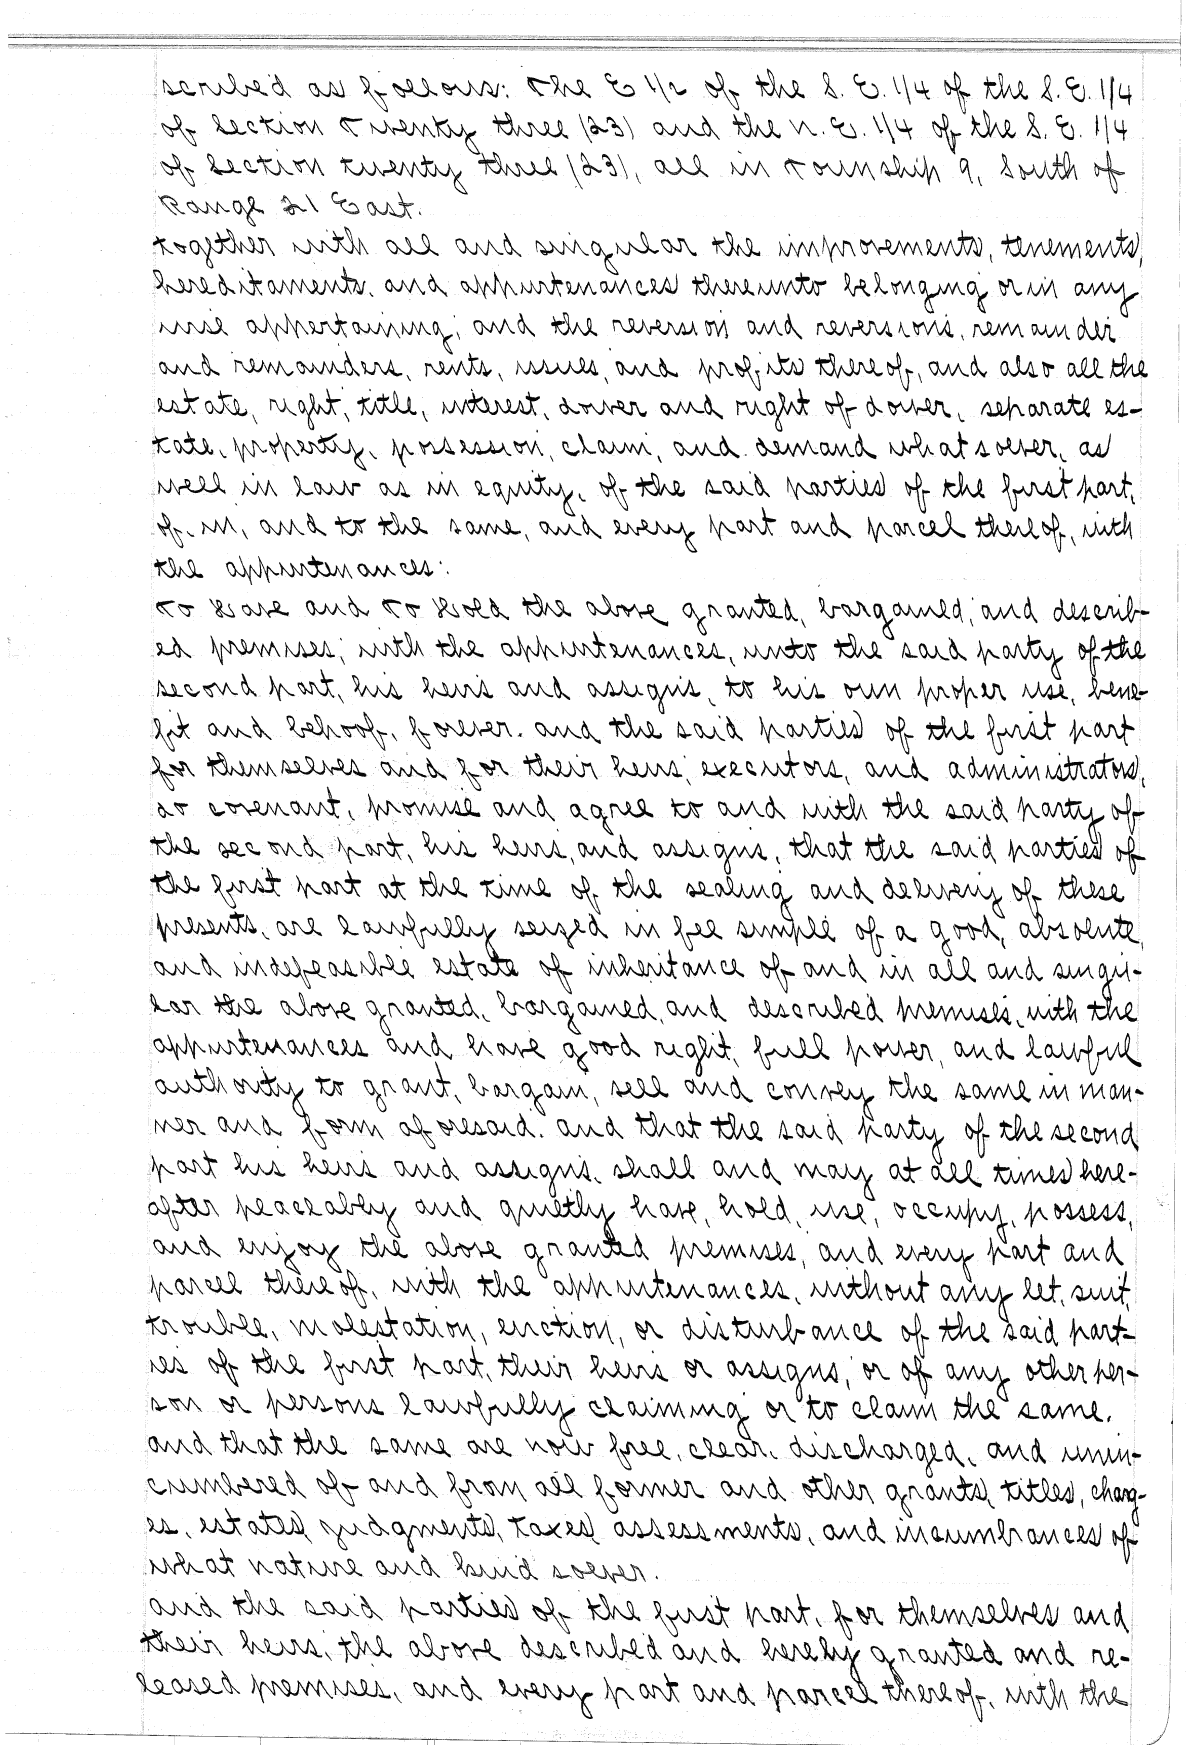 scribed as follows: The E 1/2 of the S. E. 1/4 of the S. E. 1/4
of Section Twenty three (23) and the N. E. 1/4 of the S. E. 1/4
of Section twenty three (23), all in Township 9, South of
Range 21 East.
together with all and singular the improvements, tenements,
hereditaments, and appurtenances thereunto belonging or in any
wise appertaining, and the reversion and reversions, remainder
and remainders, rents, issues, and profits thereof, and also all the
estate, right, title, interest, dower and right of dower, separate es-
tate, property, possession, claim, and demand whatsoever, as
well in law as in equity, of the said parties of the first part,
of, in, and to the same, and every part and parcel thereof, with
the appurtenances:
To Have and To Hold the above granted, bargained, and describ-
ed premises, with the appurtenances, unto the said party of the
second part, his heirs and assigns, to his own proper use, bene-
fit and behoof, forever. and the said parties of the first part
for themselves and for their heirs, executors, and administrators,
do covenant, promise and agree to and with the said party of
the second part, his heirs, and assigns, that the said parties of
the first part at the time of the sealing and delivery of these
presents, are lawfully seized in fee simple of a good, absolute,
and indefeasible estate of inheritance of and in all and singu-
lar the above granted, bargained, and described premises, with the
appurtenances and have good right, full power, and lawful
authority to grant, bargain, sell and convey the same in man-
ner and form aforesaid. and that the said party of the second
part his heirs and assigns, shall and may at all times here-
after peaceably and quietly have, hold, use, occupy, possess,
and enjoy the above granted premises, and every part and
parcel thereof, with the appurtenances, without any let, suit,
trouble, molestation, eviction, or disturbance of the said part-
ies of the first part, their heirs or assigns, or of any other per-
son or persons lawfully claiming or to claim the same.
and that the same are now free, clear, discharged, and unin-
cumbered of and from all former and other grants, titles, charg-
es, estates, judgments, taxes, assessments, and incumbrances of
what nature and kind soever.
and the said parties of the first part, for themselves and
their heirs, the above described and hereby granted and re-
leased premises, and every part and parcel thereof, with the